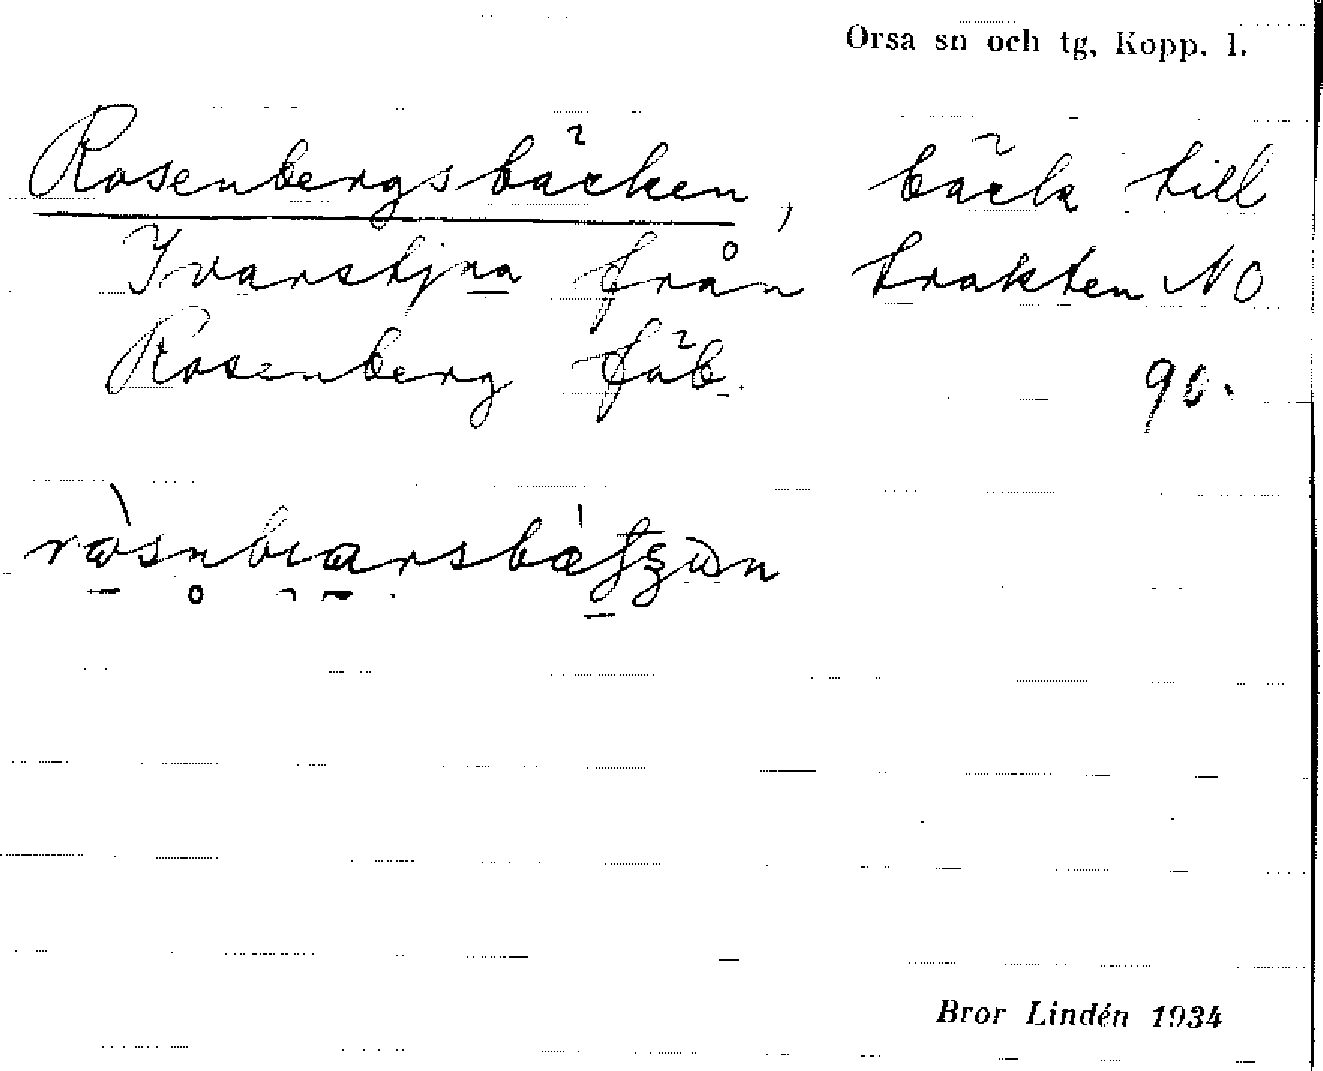 Orsa sn och tg, Kopp. l.
Rosenbergsbäcken, bäck till
Ivarstjna från trakten NO
Rosenberg fäb. 90.
Bror Lindén 1934